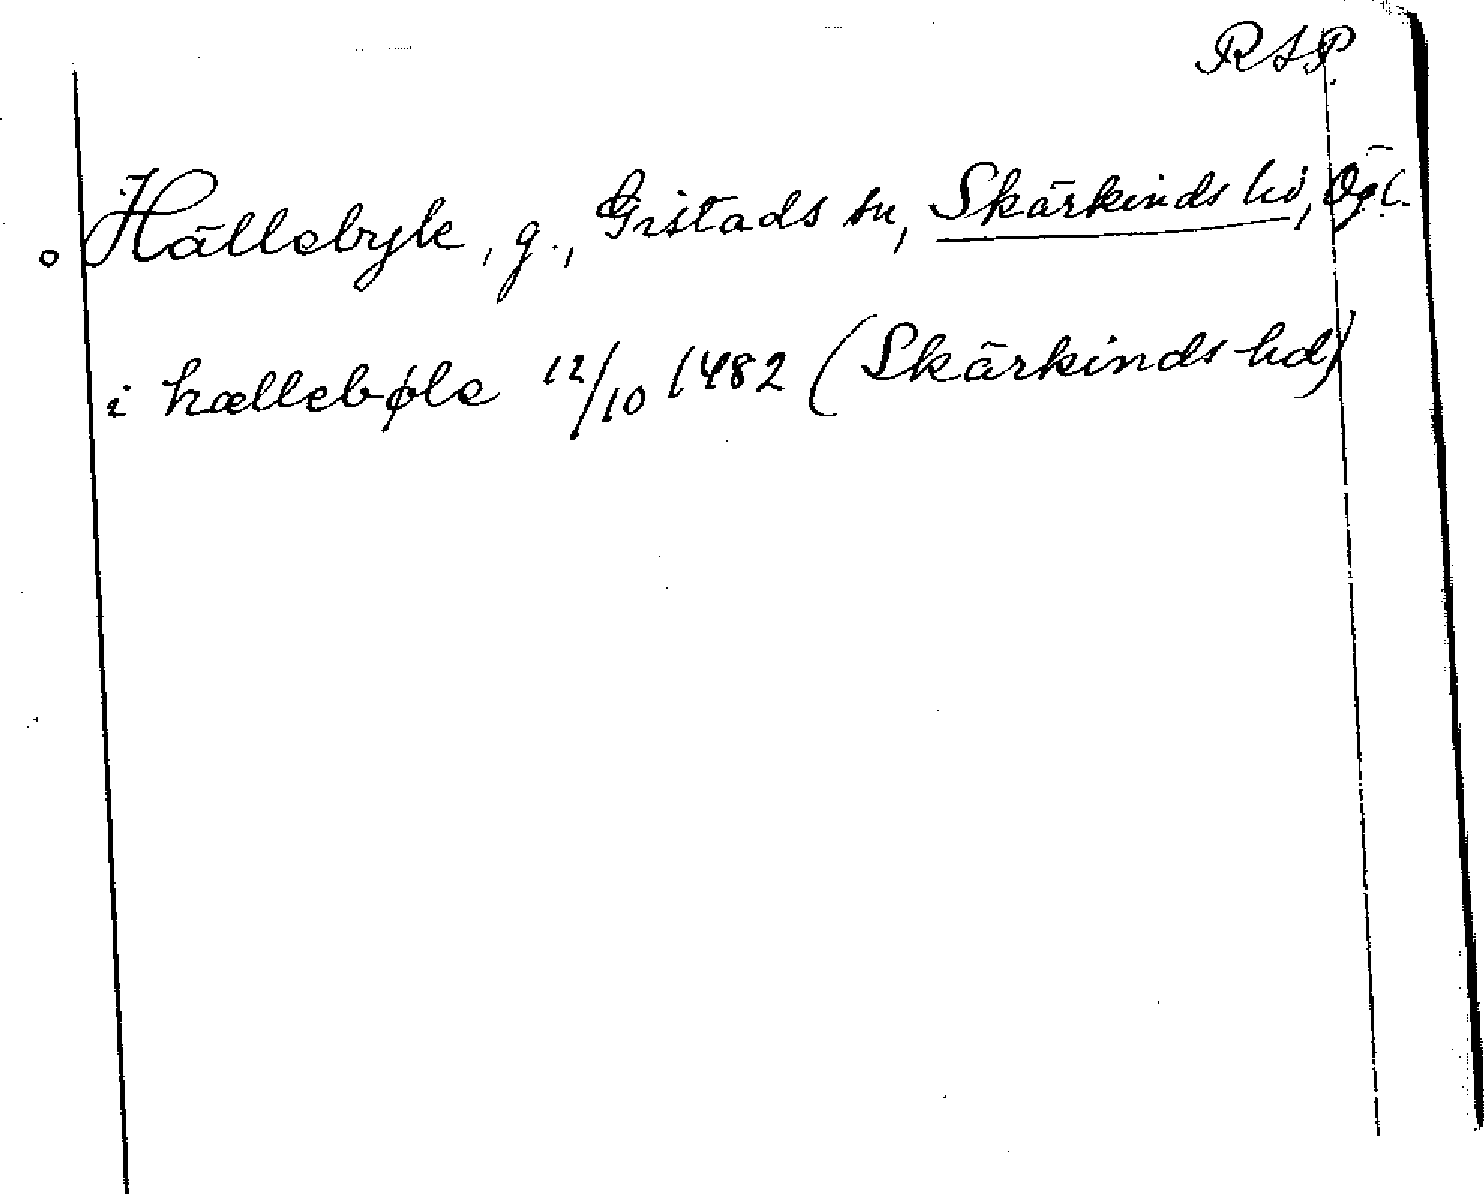 RAP.
Hällebyle, g., Gistads sn, Skärkinds hd, Ögl.
i hællebøle 12/10 1482 (Skärkinds hd)